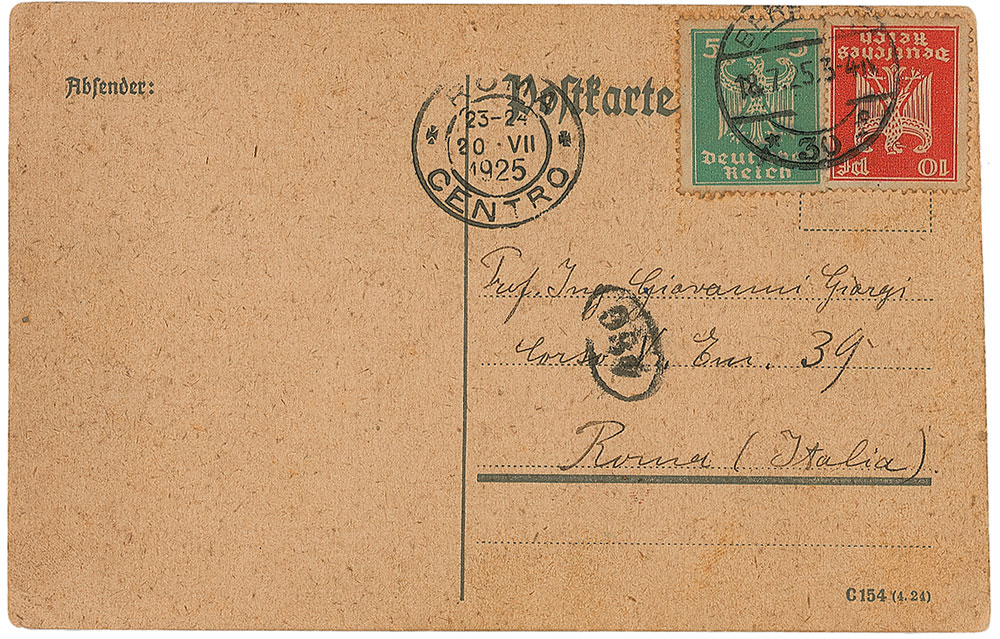 Absender:
Postkarte
ROMA
23-24
20 · VII
1925
CENTRO
5 5
Deutsches
Reich
Deutsches
Reich
10 Pf
18.7.25.3-4N
* 30
Prof. Ing. Giovanni Giorgi
Corso V. Em. 39
Roma (Italia)
C 154 (4.24)